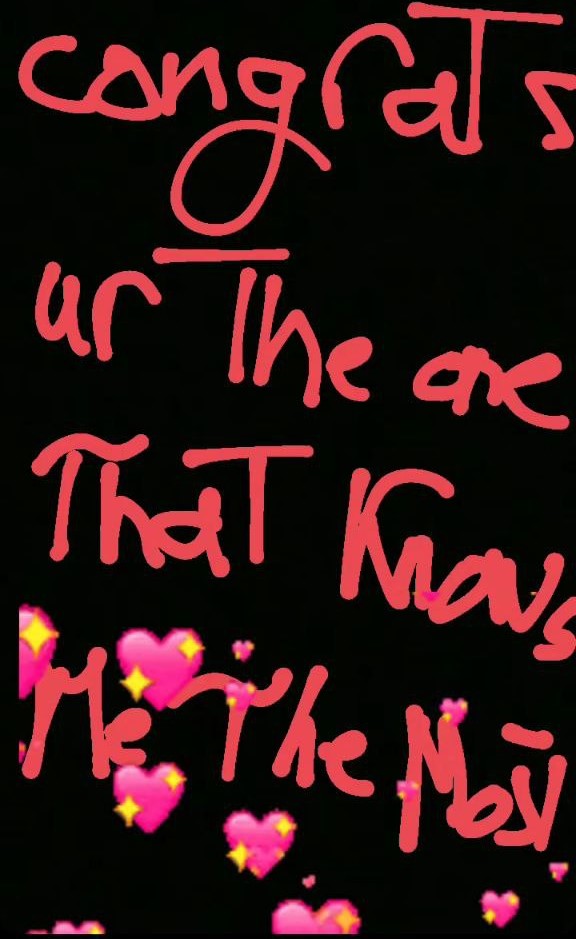 congrats
ur The one
That Knows
Me The Most